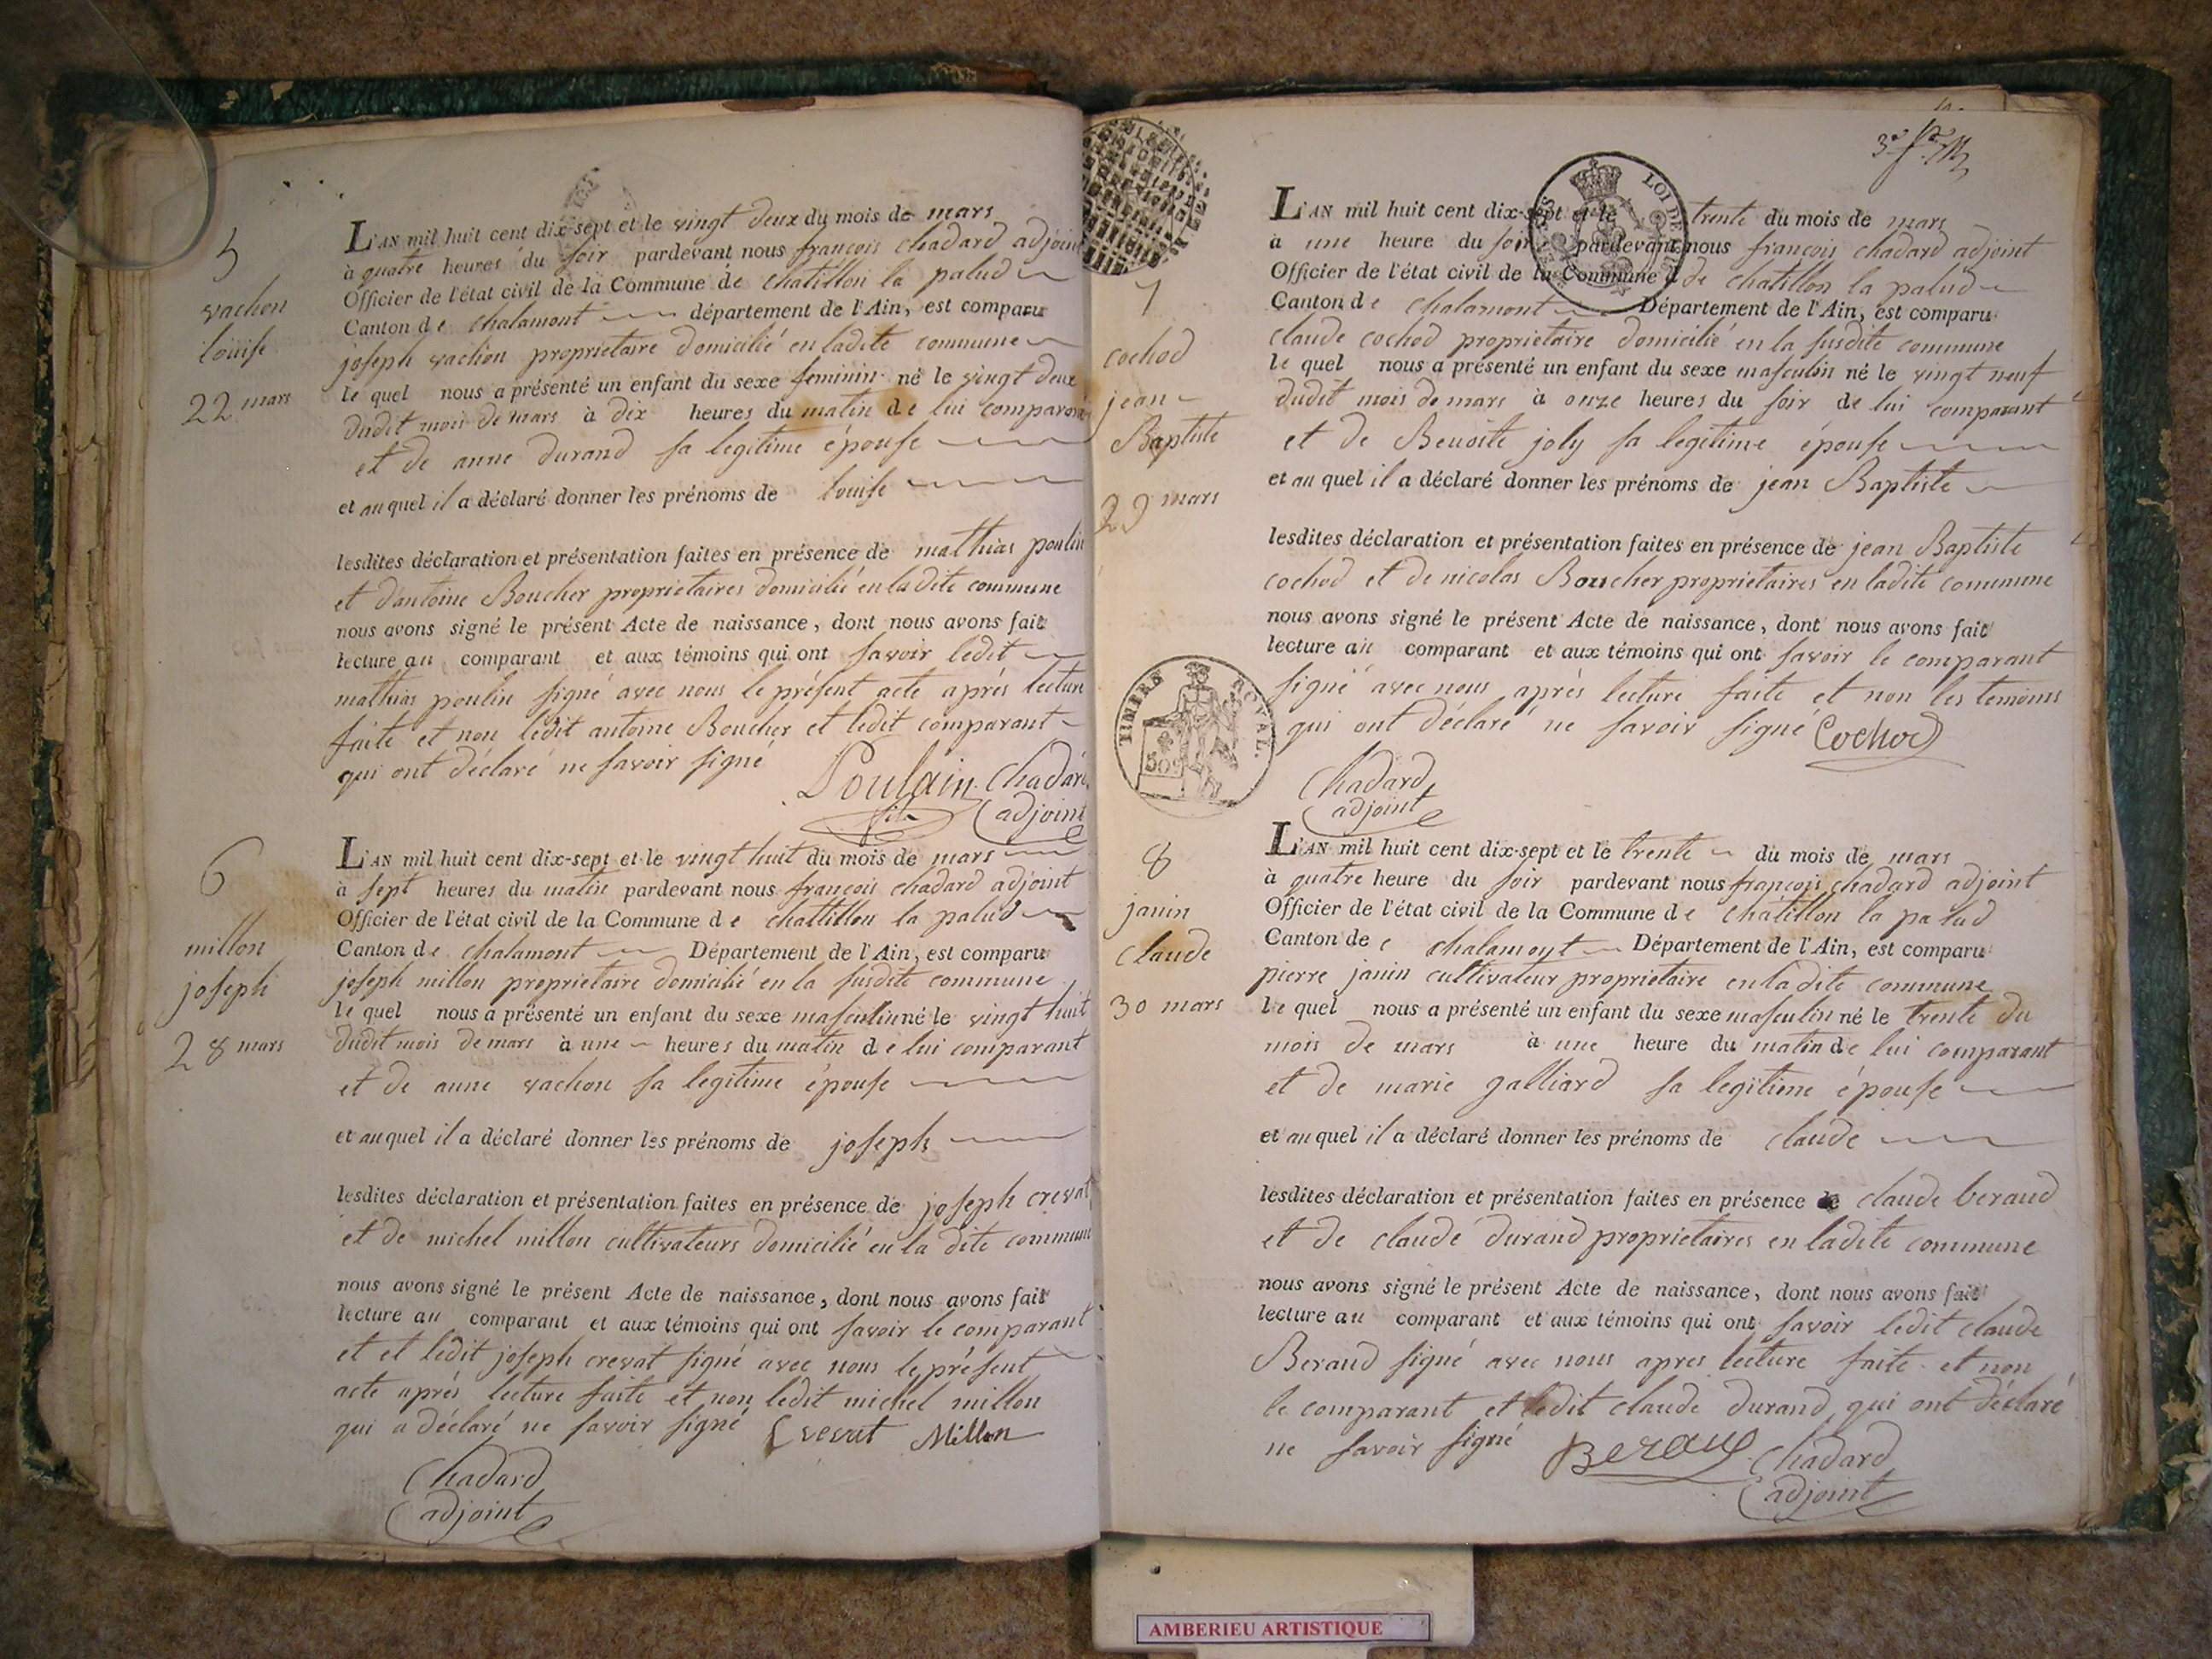 5
vachon
louise
22 mars
L'AN mil huit cent dix-sept et le vingt deux du mois de mars
à quatre heures du soir pardevant nous françois chadard adjoint
Officier de l'état civil de la Commune de chatillon la palud
Canton de chalamont département de l'Ain, est comparu
joseph vachon proprietaire domicilié en ladite commune
le quel nous a présenté un enfant du sexe feminin né le vingt deux
dudit mois de mars à dix heures du matin de lui comparant
et de anne durand sa legitime épouse
et au quel il a déclaré donner les prénoms de louise
lesdites déclaration et présentation faites en présence de mathias poulin
et d'antoine Boucher proprietaires domicilié en la dite commune
nous avons signé le présent Acte de naissance, dont nous avons fait
lecture au comparant et aux témoins qui ont savoir ledit
mathias poulin signé avec nous le présent acte après lecture
faite et non ledit antoine Boucher et ledit comparant
qui ont déclaré ne savoir signé
Poulain Chadard
fils adjoint
6
millon
joseph
28 mars
L'AN mil huit cent dix-sept et le vingt huit du mois de mars
à sept heures du matin pardevant nous françois chadard adjoint
Officier de l'état civil de la Commune de chattillon la palud
Canton de chalamont Département de l'Ain, est comparu
joseph millon proprietaire domicilié en la susdite commune
le quel nous a présenté un enfant du sexe masculin né le vingt huit
dudit mois de mars à une heures du matin de lui comparant
et de anne vachon sa legitime épouse
et au quel il a déclaré donner les prénoms de joseph
lesdites déclaration et présentation faites en présence de joseph crevat
et de michel millon cultivateurs domicilié en la dite commune
nous avons signé le présent Acte de naissance, dont nous avons fait
lecture au comparant et aux témoins qui ont savoir le comparant
et et ledit joseph crevat signé avec nous le présent
acte après lecture faite et non ledit michel millon
qui a déclaré ne savoir signé Crevat Millon
Chadard
adjoint
7
cochod
jean
Baptiste
29 mars
L'AN mil huit cent dix-sept et le trente du mois de mars
à une heure du soir pardevant nous françois chadard adjoint
Officier de l'état civil de la Commune de chatillon la palud
Canton de chalamont Département de l'Ain, est comparu
claude cochod proprietaire domicilié en la susdite commune
le quel nous a présenté un enfant du sexe masculin né le vingt neuf
dudit mois de mars à onze heures du soir de lui comparant
et de Benoite joly sa legitime épouse
et au quel il a déclaré donner les prénoms de jean Baptiste
lesdites déclaration et présentation faites en présence de jean Baptiste
cochod et de nicolas Boucher proprietaires en ladite commune
nous avons signé le présent Acte de naissance, dont nous avons fait
lecture au comparant et aux témoins qui ont savoir le comparant
signé avec nous après lecture faite et non les temoins
qui ont déclaré ne savoir signé Cochod
Chadard
adjoint
TIMBRE ROYAL.
50c
8
janin
claude
30 mars
L'AN mil huit cent dix-sept et le trente du mois de mars
à quatre heure du soir pardevant nous françois chadard adjoint
Officier de l'état civil de la Commune de châtillon la palud
Canton de chalamont Département de l'Ain, est comparu
pierre janin cultivateur proprietaire en ladite commune
le quel nous a présenté un enfant du sexe masculin né le trente du
mois de mars à une heure du matin de lui comparant
et de marie galliard sa legitime épouse
et au quel il a déclaré donner les prénoms de claude
lesdites déclaration et présentation faites en présence de claude beraud
et de claude durand proprietaires en ladite commune
nous avons signé le présent Acte de naissance, dont nous avons fait
lecture au comparant et aux témoins qui ont savoir ledit claude
Beraud signé avec nous apres lecture faite et non
le comparant et ledit claude durand qui ont déclaré
ne savoir signé Beraud Chadard
adjoint
AMBERIEU ARTISTIQUE